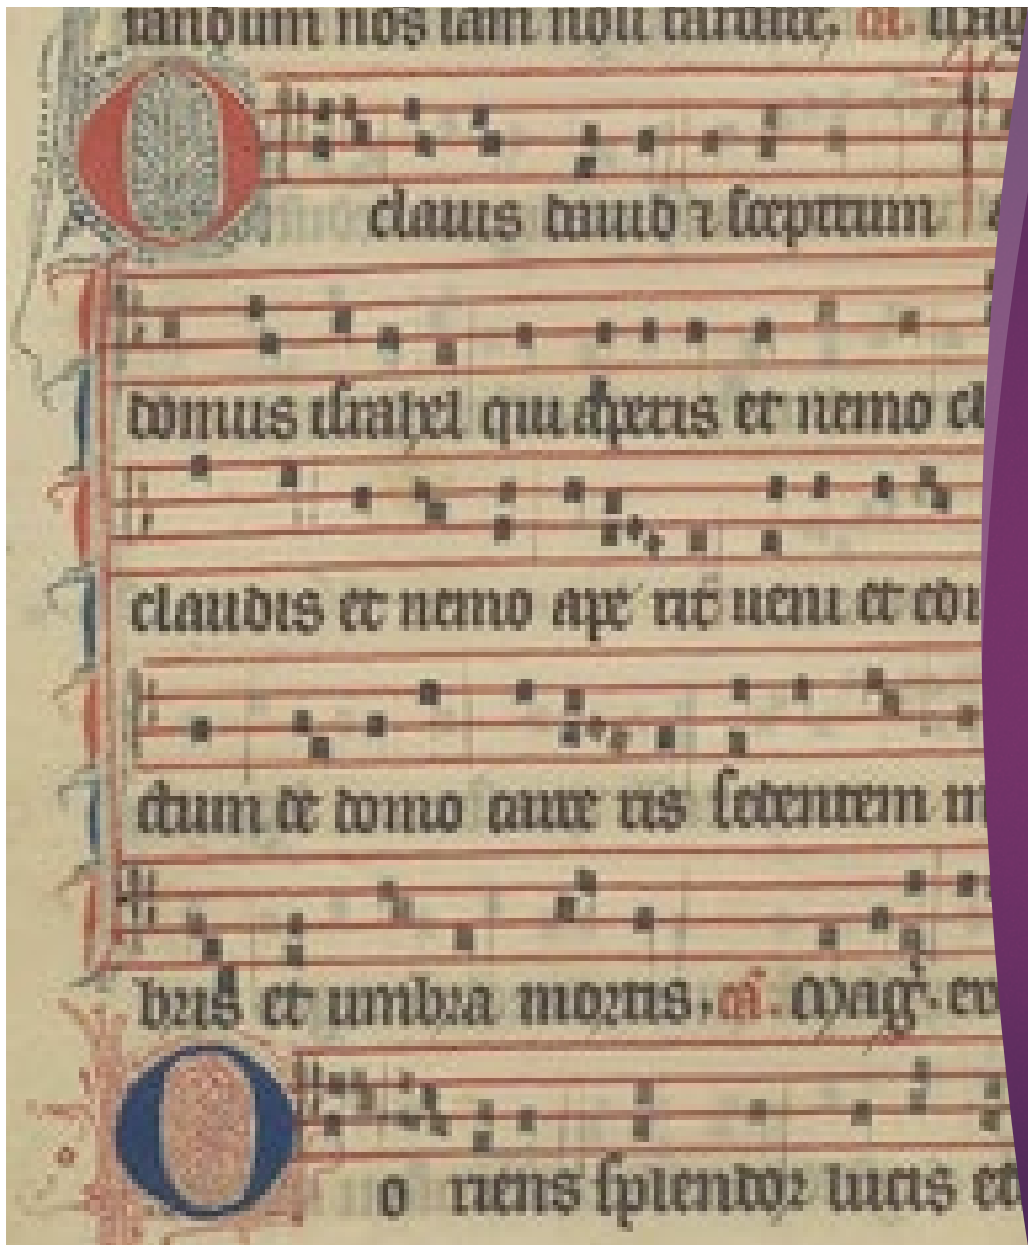 tandum nos iam noli tardare. a.
O clauis dauid ⁊ sceptrum
domus israhel qui aperis et nemo cl
claudis et nemo ape rit ueni et edu
ctum de domo carce ris sedentem in
bris et umbra mortis. a. Mag. eu
O o riens splendor lucis et